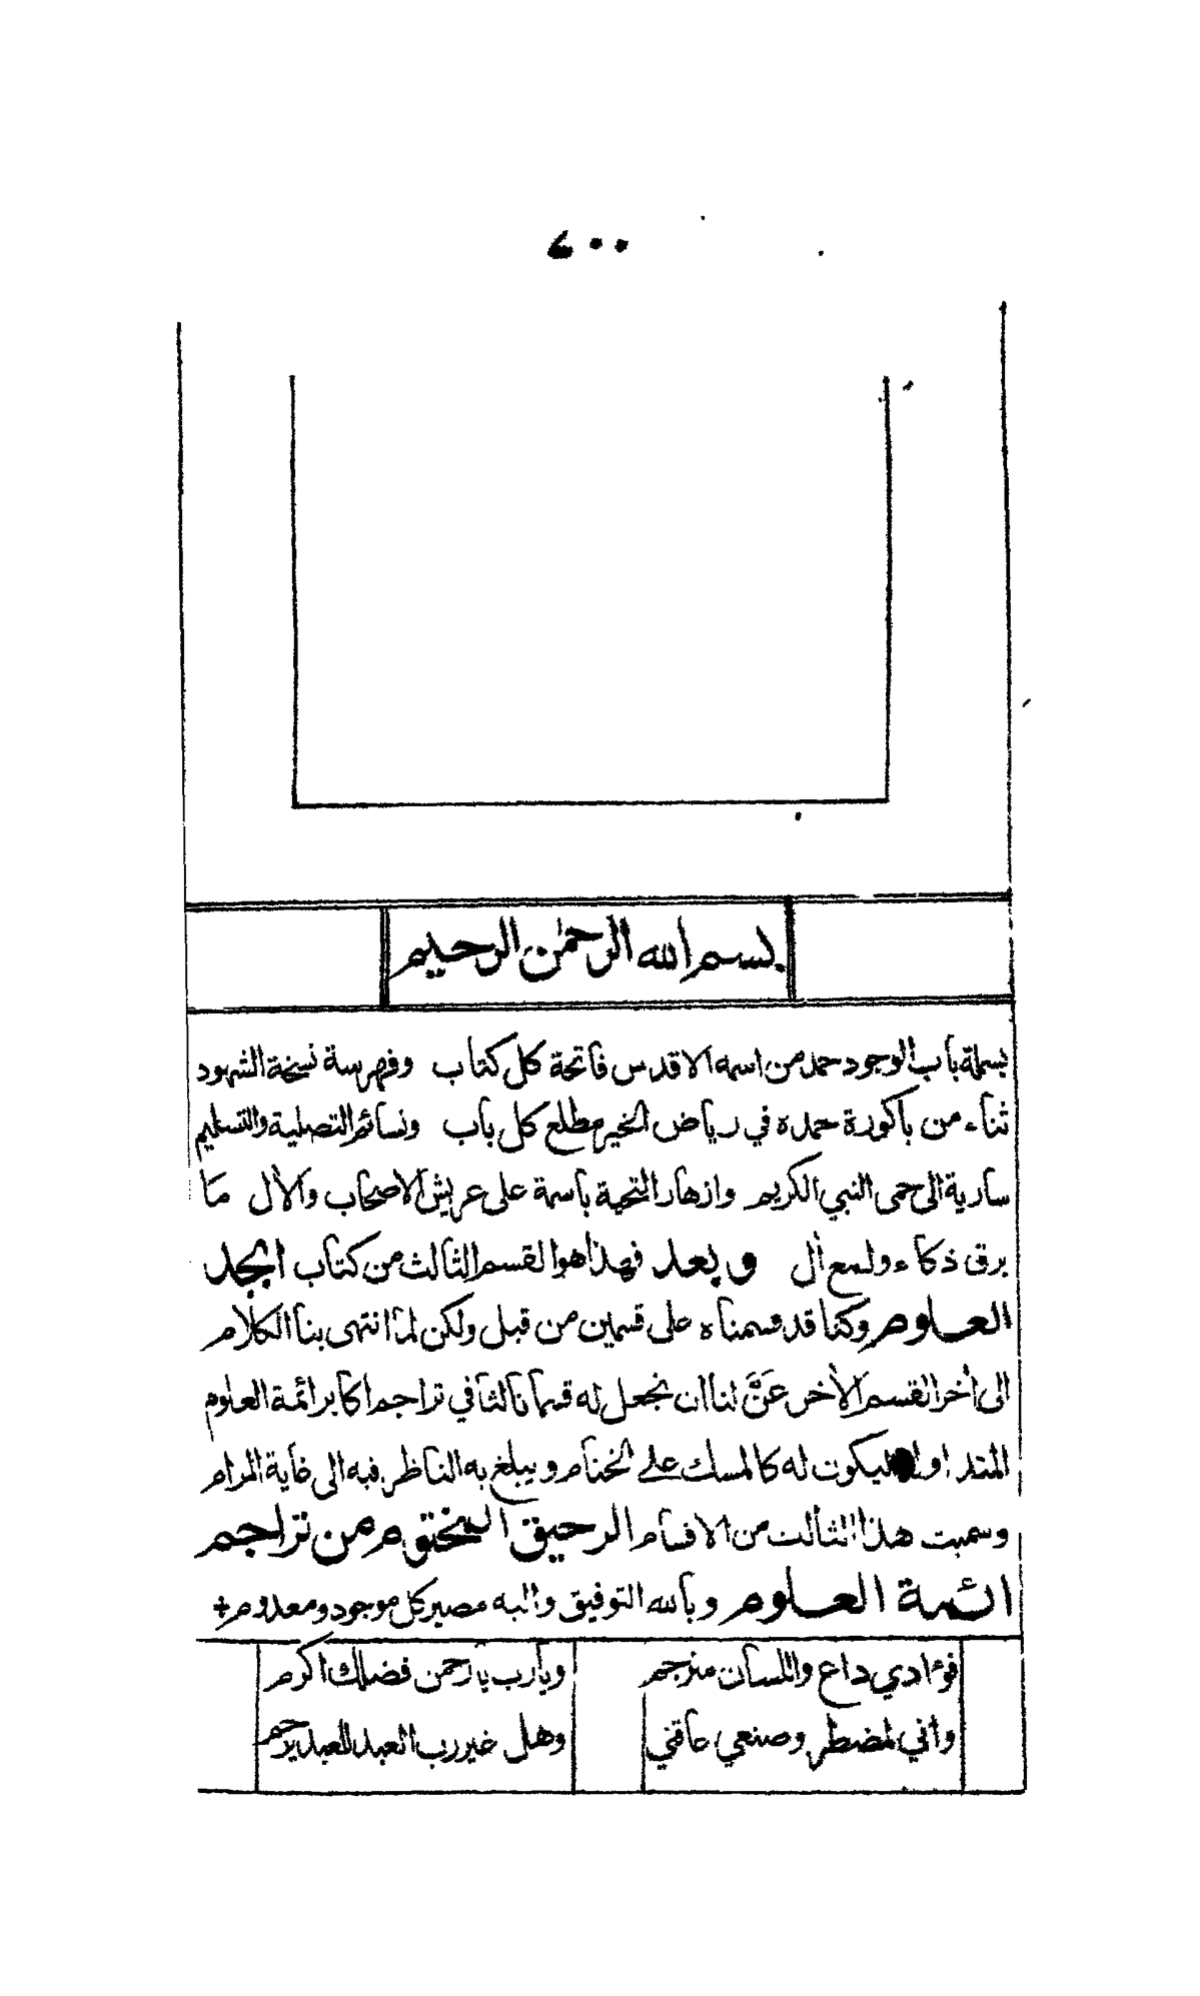 بسم الله الرحمٰن الرحيم
بسملة باب الوجود حمد من اسمه الاقدس فاتحة كل كتاب وفهرسة نسخة الشهود
ثناء من باكورة حمده في رياض الخير مطلع كل باب ونسائم التصلية والتسليم
سارية الى حمى النبي الكريم وازهار التحية باسمة على عريش الاصحاب والأل مَا
برق ذكاء ولمع أل وبعد فهذا هو القسم الثالث من كتاب ابجد
العلوم وكنا قد قسمناه على قسمين من قبل ولكن لمّا انتهى بنا الكلام
الى أخر القسم الأخر عَنَّ لنا ان نجعل له قسما ثالثا في تراجم اكابر ائمة العلوم
المتداولة ليكون له كالمسك على الختام ويبلغ به الناظر فيه الى غاية المرام
وسميت هذا الثالث من الاقسام الرحيق المختوم من تراجم
ائمة العلوم وبالله التوفيق واليه مصير كل موجود ومعدوم +
فؤادي داع واللسان مترجم ويا رب يا رحمن فضلك اكرم
واني لمضطر وصنعي عاقني وهل غير رب العبد للعبد يرحم